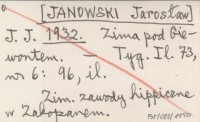 [JANOWSKI Jarosław]
J. J. 1932. Zima pod Gie-
wontem. — Tyg. Il. 73,
nr 6: 96, il.
Zim. zawody hippiczne
w Zakopanem.